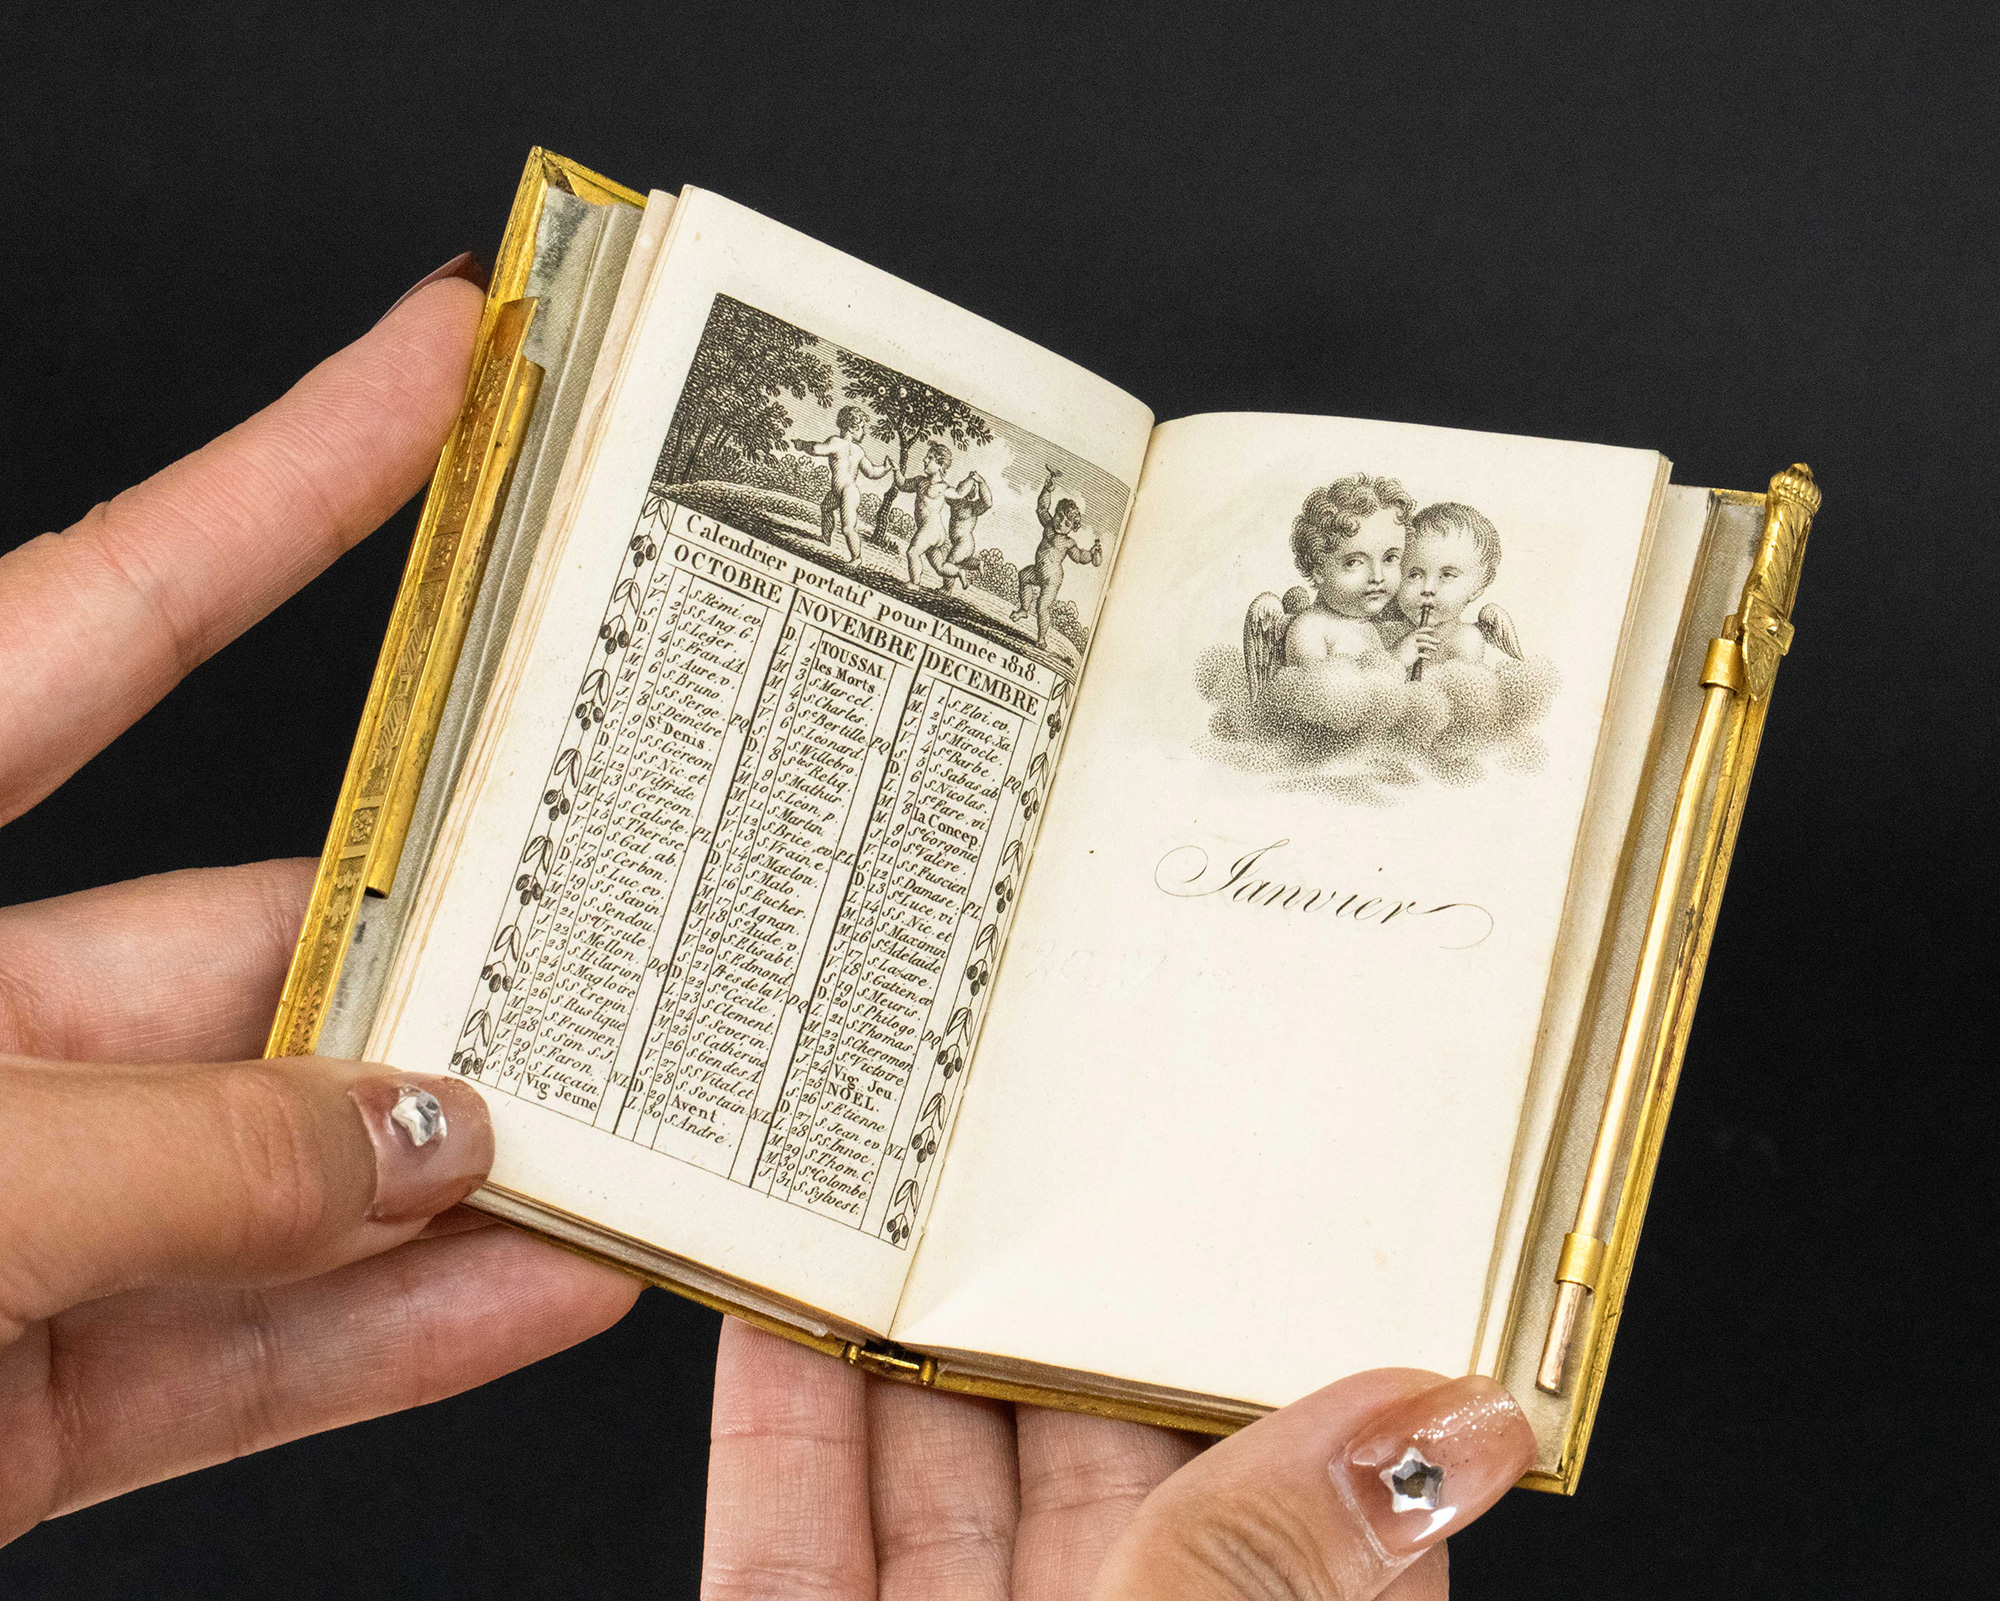 Calendrier portatif pour l'Année 1818.
OCTOBRE
J. 1 S. Remi, ev.
V. 2 SS. Ang. G.
S. 3 S. Leger.
D. 4 S. Fran. d'A.
L. 5 S. Aure, v.
M. 6 S. Bruno.
M. 7 SS. Serge. P.Q.
J. 8 S. Demetre
V. 9 St. Denis.
S. 10 S.S. Géreon
D. 11 S.S. Nic. et.
L. 12 S. Vilfride
M. 13 S. Géreon.
M. 14 S. Caliste. P.L.
J. 15 S. Therèse
V. 16 S. Gal, ab.
S. 17 S. Cerbon.
D. 18 S. Luc, ev.
L. 19 S.S. Savin.
M. 20 S. Sendou.
M. 21 Se. Ursule.
J. 22 S. Mellon. D.Q.
V. 23 S. Hilarion
S. 24 S. Magloire
D. 25 S.S. Crepin.
L. 26 S. Rustique
M. 27 S. Frumen.
M. 28 S. Sim. S.J.
J. 29 S. Faron. N.L.
V. 30 S. Lucain.
S. 31 Vig Jeune
NOVEMBRE
D. 1 TOUSSAI.
L. 2 les Morts.
M. 3 S. Marcel.
M. 4 S. Charles.
J. 5 Se. Bertille. P.Q.
V. 6 S. Leonard.
S. 7 S. Willebro.
D. 8 Stes Reliq.
L. 9 S. Mathur.
M. 10 S. Leon, p.
M. 11 S. Martin.
J. 12 S. Brice, ev. P.L.
V. 13 S. Vrain, e.
S. 14 S. Maclou.
D. 15 S. Malo.
L. 16 S. Eucher.
M. 17 S. Agnan.
M. 18 Se. Aude, v.
J. 19 S. Elisabt.
V. 20 S. Edmond.
S. 21 Prés. de la V. D.Q.
D. 22 Se. Cécile.
L. 23 S. Clement.
M. 24 S. Severin.
M. 25 S. Catherine
J. 26 S. Gen des A.
V. 27 SS. Vital, et
S. 28 S. Sostain. N.L.
D. 29 Avent.
L. 30 S. André.
DECEMBRE
M. 1 S. Eloi, ev.
M. 2 S. Franç. Xa.
J. 3 S. Mirocle.
V. 4 Se. Barbe. P.Q.
S. 5 S. Sabas ab.
D. 6 S. Nicolas.
L. 7 Se. Fare, vi.
M. 8 la Concep.
M. 9 Se. Gorgonie
J. 10 S. Valere.
V. 11 S.S. Fuscien
S. 12 S. Damase. P.L.
D. 13 Se. Luce, vi
L. 14 S.S. Nic. et
M. 15 S. Maximin
M. 16 Se. Adelaide
J. 17 S. Lazare.
V. 18 S. Gatien, ev
S. 19 S. Meuris.
D. 20 S. Philogo. D.Q.
L. 21 S. Thomas.
M. 22 S. Cheromon
M. 23 Se. Victoire.
J. 24 Vig. Jeu.
V. 25 NOËL.
S. 26 S. Etienne
D. 27 S. Jean, ev. N.L.
L. 28 S.S. Innoc.
M. 29 S. Thom. C.
M. 30 Se. Colombe.
J. 31 S. Sylvest.
Janvier